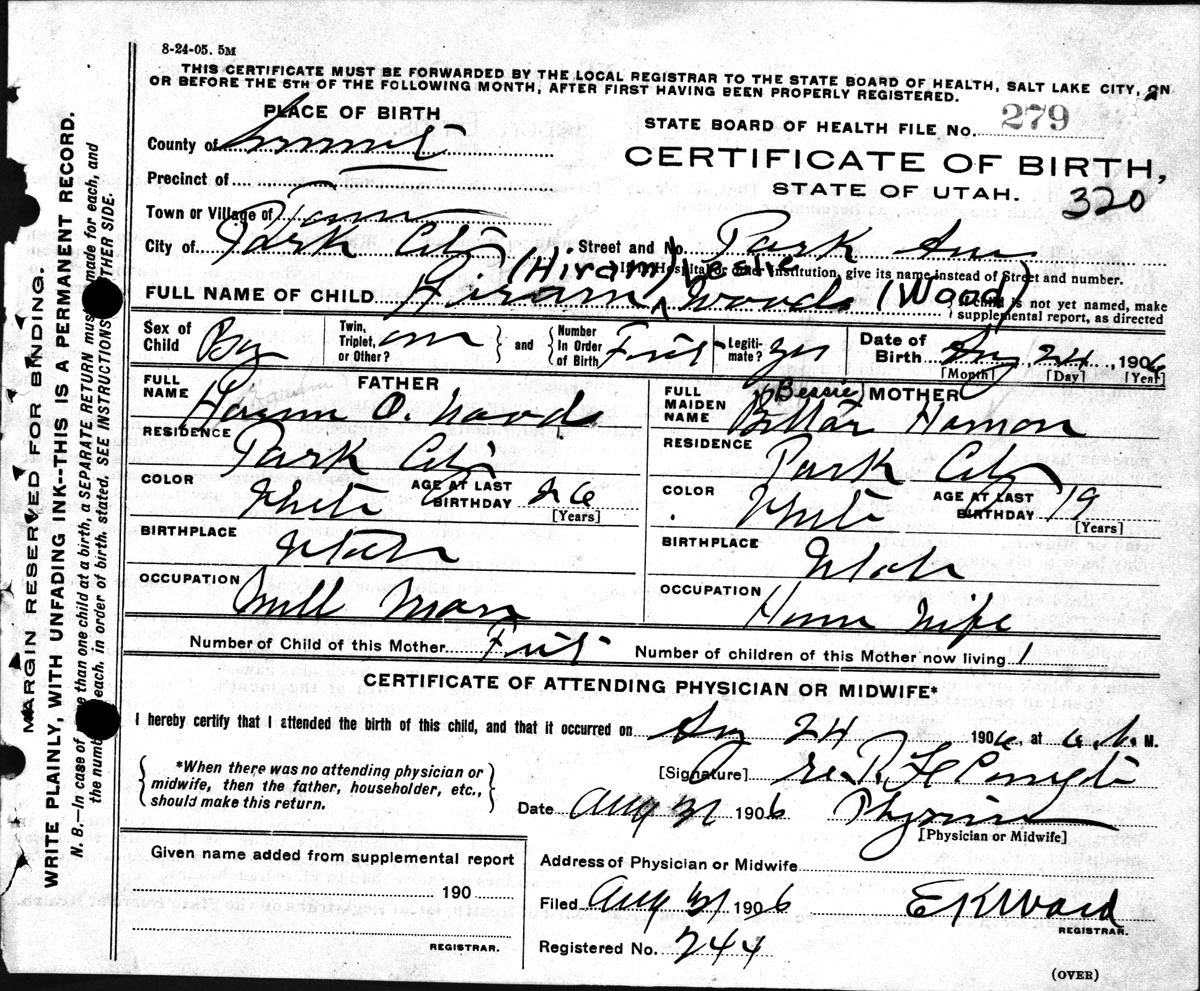 8-24-05. 5M
THIS CERTIFICATE MUST BE FORWARDED BY THE LOCAL REGISTRAR TO THE STATE BOARD OF HEALTH, SALT LAKE CITY, ON
OR BEFORE THE 5TH OF THE FOLLOWING MONTH, AFTER FIRST HAVING BEEN PROPERLY REGISTERED.
PLACE OF BIRTH
STATE BOARD OF HEALTH FILE No. 279
County of Summit
CERTIFICATE OF BIRTH,
STATE OF UTAH.
320
Precinct of
Town or Village of
City of Park City Street and No. Park Ave
If in Hospital or other institution, give its name instead of Street and number.
(Hiram) Leslie
FULL NAME OF CHILD Hiram Woods (Wood)
If child is not yet named, make
supplemental report, as directed
Sex of Child Boy Twin, Triplet, or Other? and Number In Order of Birth First Legitimate? yes Date of Birth Aug 24, 1906
[Month] [Day] [Year]
FATHER
FULL NAME Hiram O. Woods
RESIDENCE Park City
COLOR White AGE AT LAST BIRTHDAY 26
[Years]
BIRTHPLACE Utah
OCCUPATION Mill Man
(Bessie) MOTHER
FULL MAIDEN NAME
RESIDENCE Park City
COLOR White AGE AT LAST BIRTHDAY 19
[Years]
BIRTHPLACE Utah
OCCUPATION House Wife
Number of Child of this Mother First Number of children of this Mother now living 1
CERTIFICATE OF ATTENDING PHYSICIAN OR MIDWIFE*
I hereby certify that I attended the birth of this child, and that it occurred on Aug 24 1906, at M.
*When there was no attending physician or
midwife, then the father, householder, etc.,
should make this return.
[Signature]
Date Aug 31 1906 Physician
[Physician or Midwife]
Given name added from supplemental report
190
REGISTRAR.
Address of Physician or Midwife
Filed Aug 31 1906 E K Ward
REGISTRAR.
Registered No. 244
(OVER)
MARGIN RESERVED FOR BINDING.
WRITE PLAINLY, WITH UNFADING INK--THIS IS A PERMANENT RECORD.
N. B.—In case of more than one child at a birth, a SEPARATE RETURN must be made for each, and
the number of each, in order of birth, stated. SEE INSTRUCTIONS OTHER SIDE.